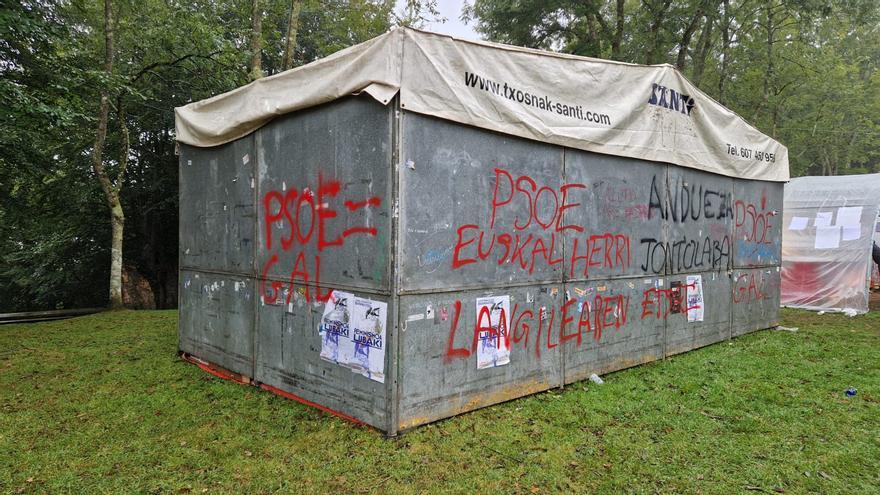 www.txosnak-santi.com
SANTI
Tel. 607 46 95
PSOE=
GAL
PSOE
EUSKAL HERRI
LANGILEAREN ETSE
ANDUEZA
JONTOLABA
PSOE
GAL